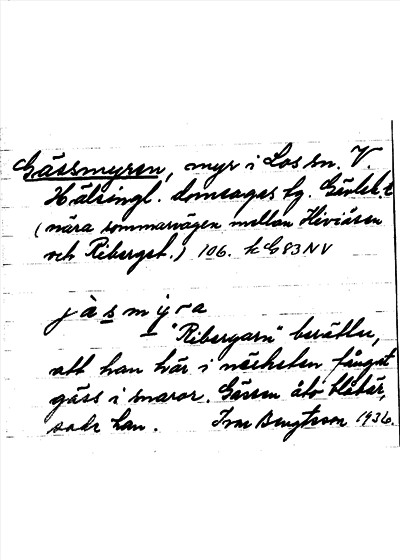 Gässmyren, myr i Los sn. V.
Hälsingl. domsagas tg. Gävleb. l
(nära sommarvägen mellan
och Riberget.) 106. k G 83 NV
jàsmýra
"Ribergarn" berättar,
att han här i närheten fångat
gäss i snaror. Gässen åto blåbär,
sade han. Ivar Bengtsson 1936.